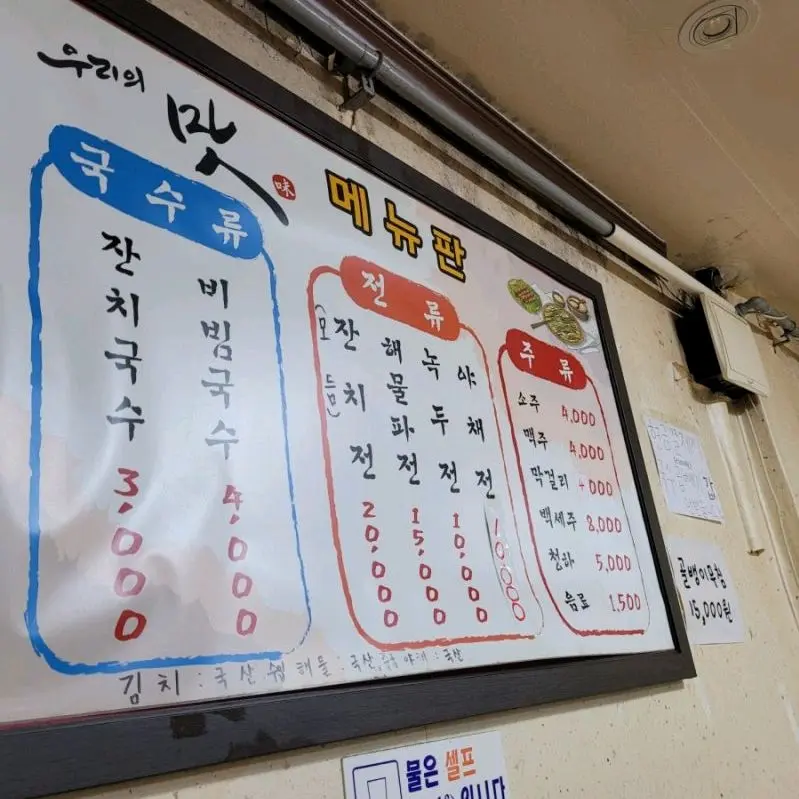 우리의
맛
味
메뉴판
국수류
잔치국수 3,000
비빔국수 4,000
전류
(모듬) 잔치전 20,000
해물파전 15,000
녹두전 10,000
야채전 10,000
주류
소주 4,000
맥주 4,000
막걸리 000
백세주 8,000
천하 5,000
음료 1,500
김치 : 국산 해물 : 국산, 야채 : 국산
골뱅이무침
15,000원
물은 셀프
입니다